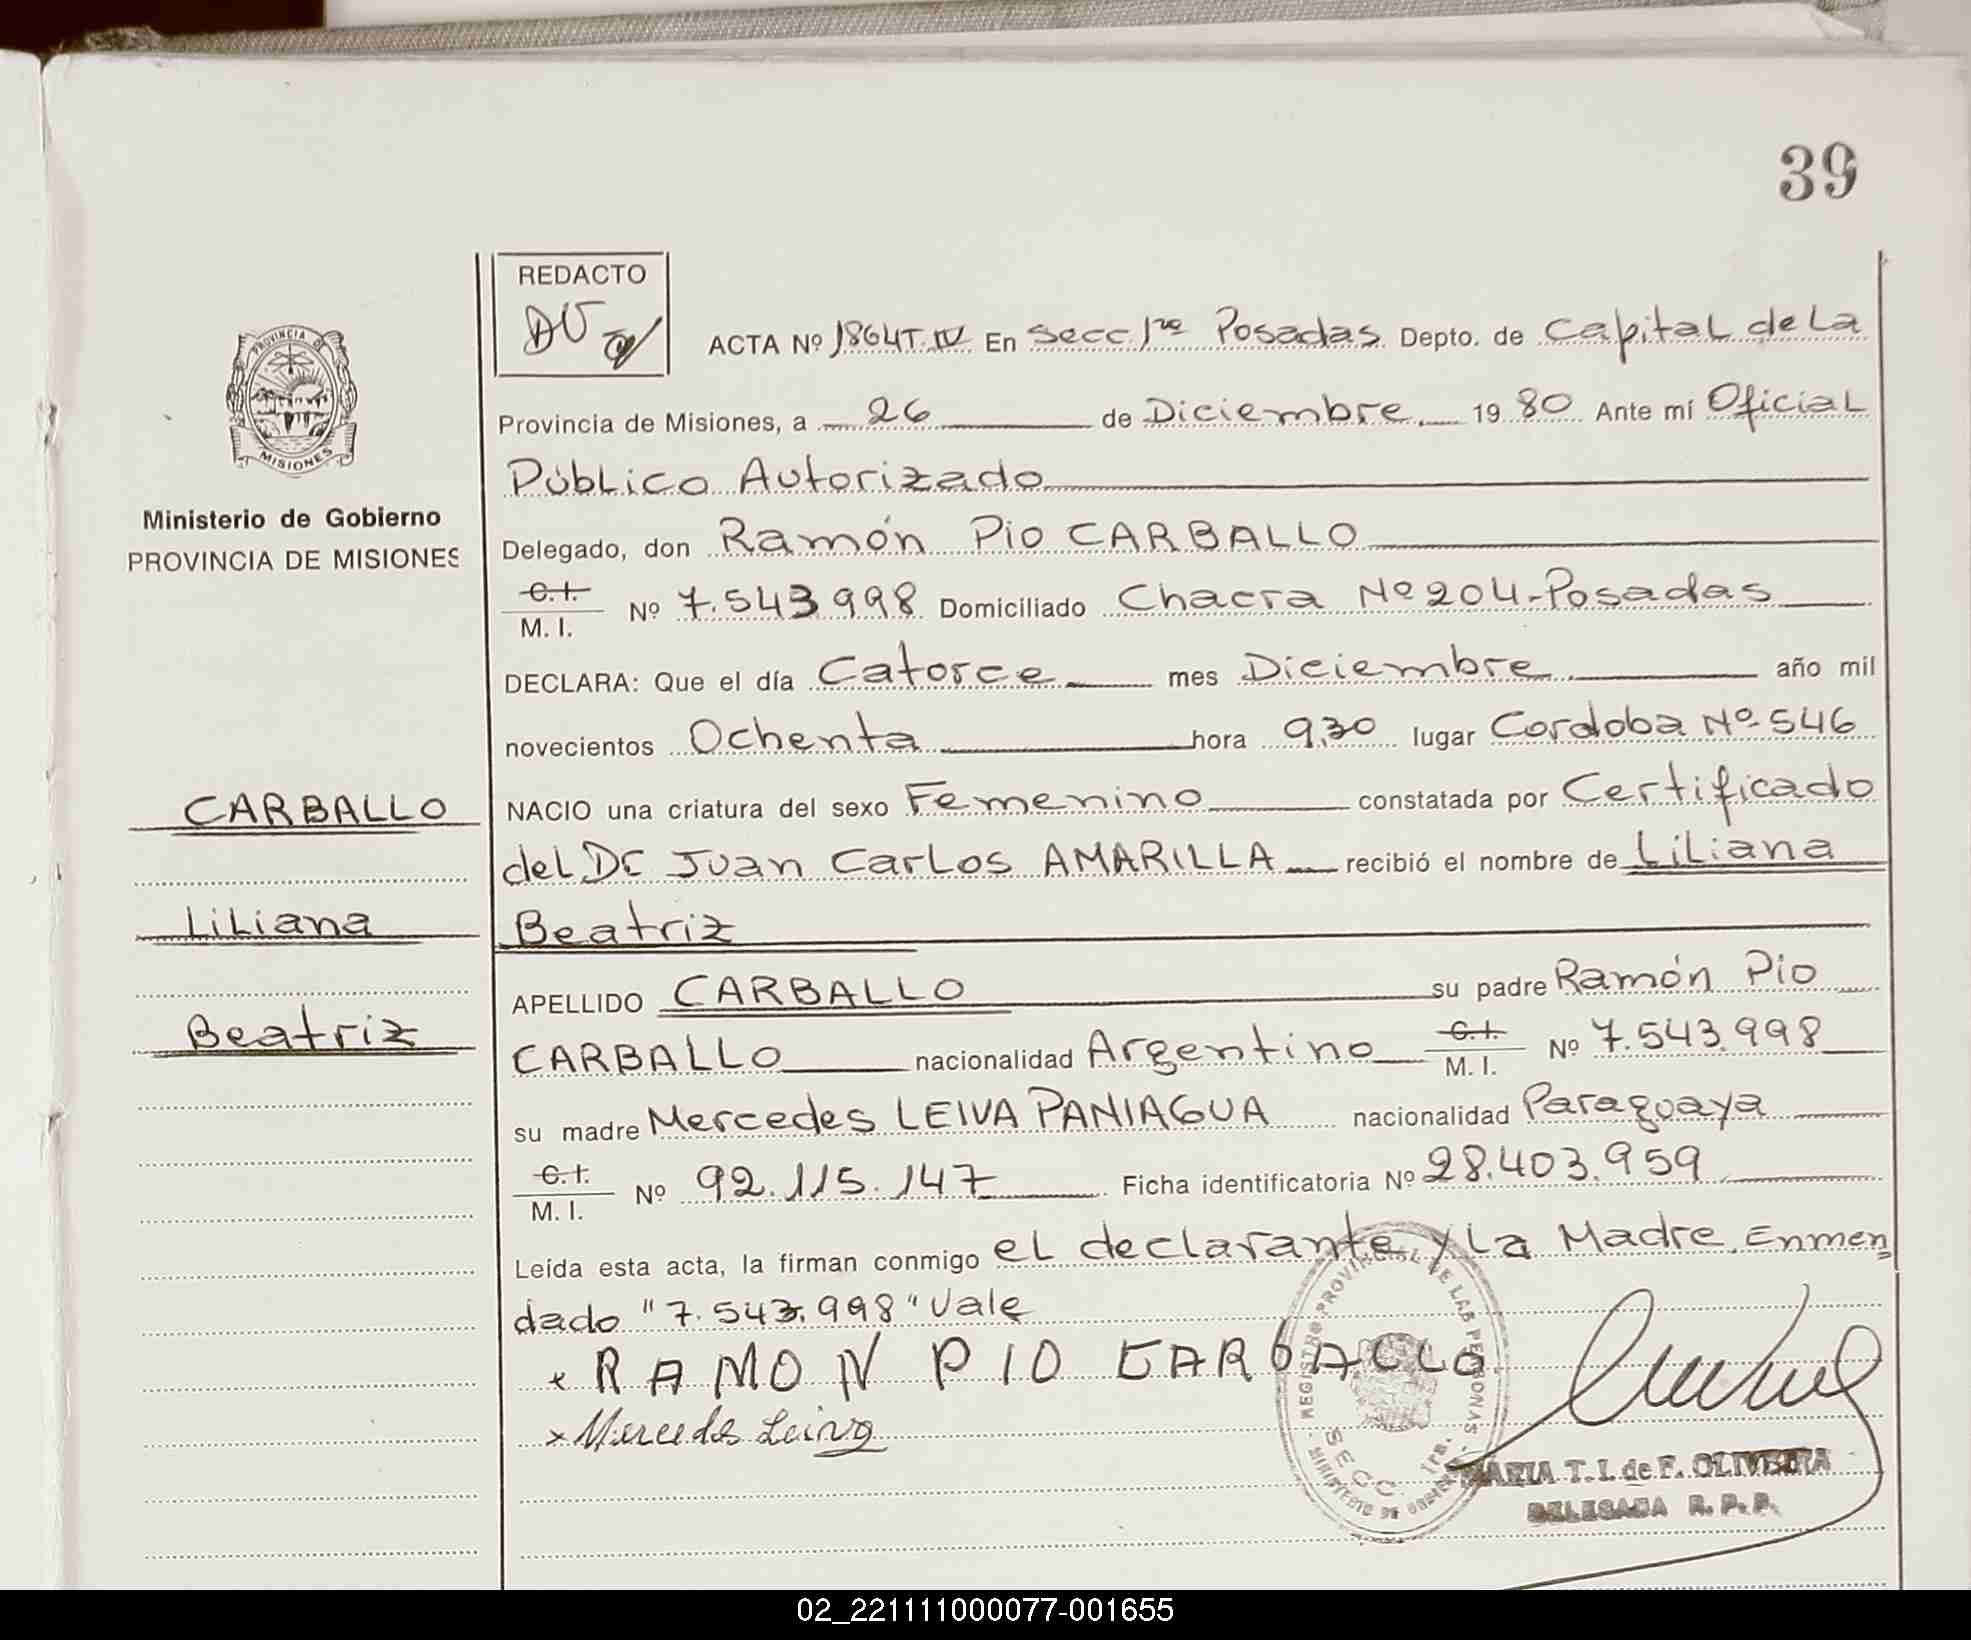 39
REDACTO
PROVINCIA D
MISIONES
Ministerio de Gobierno
PROVINCIA DE MISIONES
CARBALLO
Liliana
Beatriz
ACTA Nº 1864 T. IV En Secc. 1ra Posadas Depto. de Capital de La
Provincia de Misiones, a 26 de Diciembre 1980 Ante mí Oficial
Público Autorizado
Delegado, don Ramón Pio CARBALLO
C.I. / M. I. Nº 7.543.998 Domiciliado Chacra Nº 204-Posadas
DECLARA: Que el día Catorce mes Diciembre año mil
novecientos Ochenta hora 9,30 lugar Cordoba Nº 546
NACIO una criatura del sexo Femenino constatada por Certificado
del Dr Juan Carlos AMARILLA recibió el nombre de Liliana
Beatriz
APELLIDO CARBALLO su padre Ramón Pio
CARBALLO nacionalidad Argentino C.I. / M. I. Nº 7.543.998
su madre Mercedes LEIVA PANIAGUA nacionalidad Paraguaya
C.I. / M. I. Nº 92.115.147 Ficha identificatoria Nº 28.403.959
Leída esta acta, la firman conmigo el declarante y La Madre. Enmen=
dado "7.543.998" Vale
x RAMON PIO CARBALLO
x Mercedes Leiva
REGISTRO PROVINCIAL DE LAS PERSONAS
SECC. 1ra.
MARIA T. I. de F. OLIVEIRA
DELEGADA R. P. P.
02_221111000077-001655